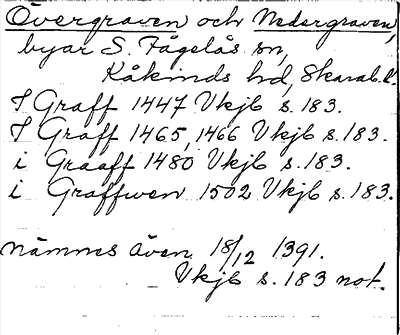 Övergraven och Nedergraven,
byar S. Fågelås sn,
Kåkinds hd, Skarab. l.
I Graff 1447 Vkjb s. 183.
I Graff 1465, 1466 Vkjb s. 183.
i Graaff 1480 Vkjb s. 183.
i Graffwen 1502 Vkjb s. 183.
nämnes även 18/12 1391.
Vkjb s. 183 not.